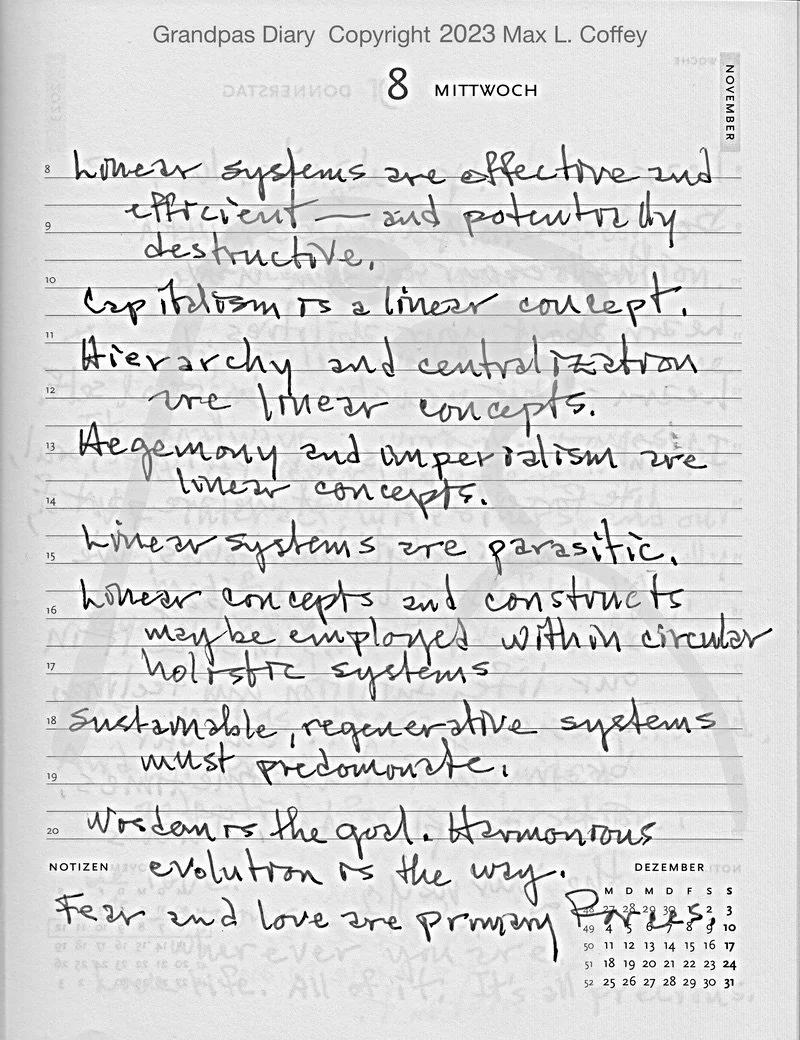 Grandpas Diary Copyright 2023 Max L. Coffey
8 MITTWOCH
NOVEMBER
8 Linear systems are effective and
efficient — and potentially
9
destructive.
10
Capitalism is a linear concept.
11
Hierarchy and centralization
12
are linear concepts.
13 Hegemony and imperialism are
linear concepts.
14
Linear systems are parasitic.
15
Linear concepts and constructs
16
may be employed within circular
17 holistic systems
18 Sustainable, regenerative systems
must predominate.
19
20 Wisdom is the goal. Harmonious
NOTIZEN evolution is the way.
DEZEMBER
Fear and love are primary
M D M D F S S
48 27 28 29 30 1 2 3
49 4 5 6 7 8 9 10
50 11 12 13 14 15 16 17
51 18 19 20 21 22 23 24
52 25 26 27 28 29 30 31